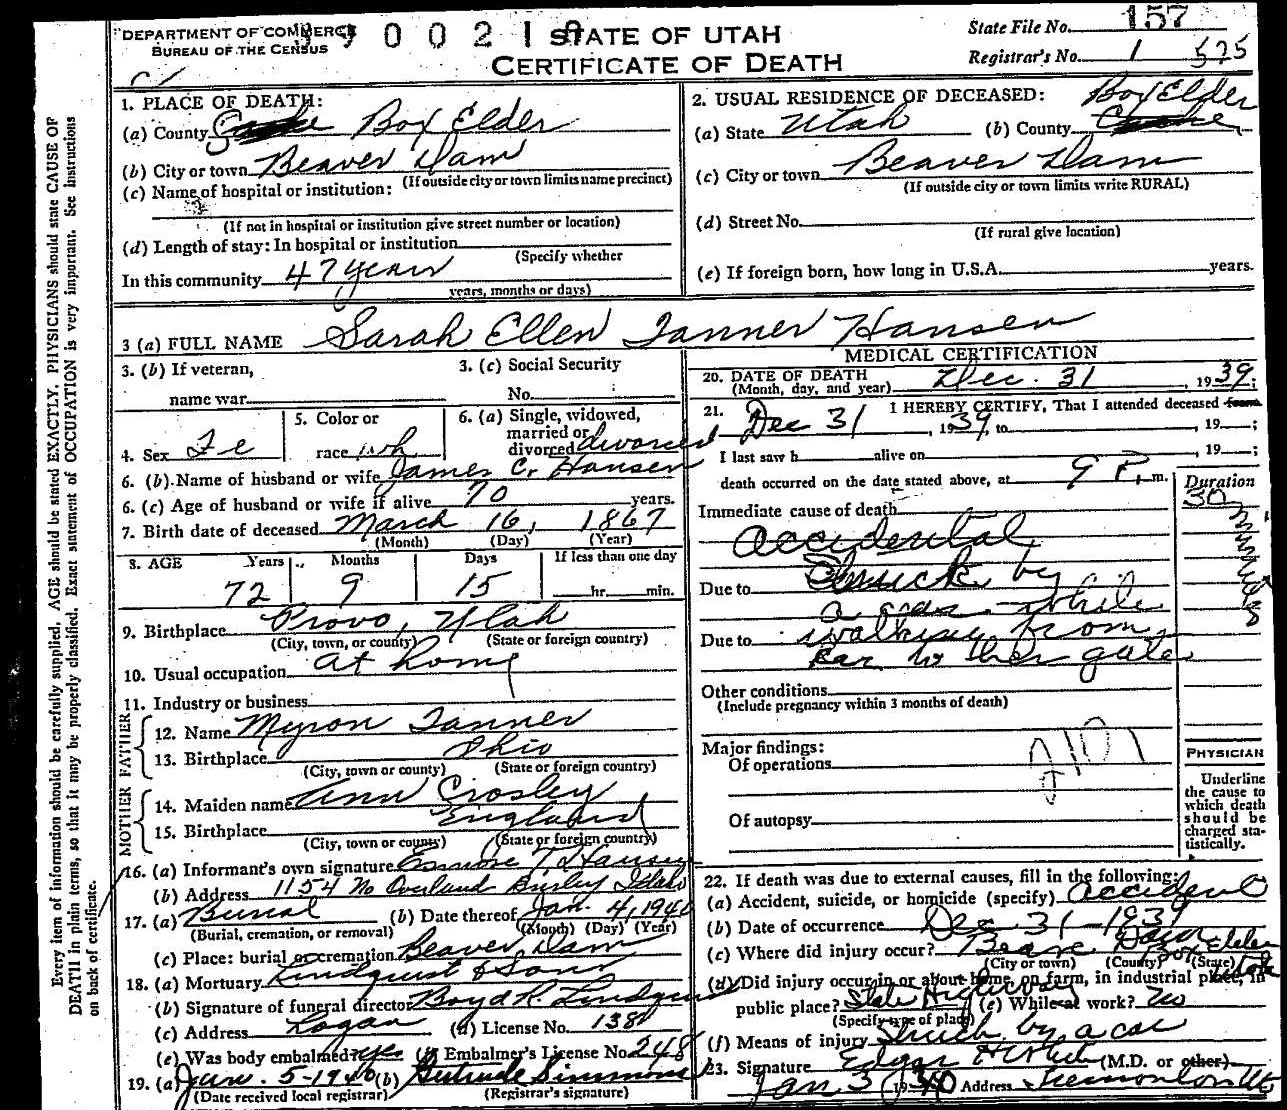 DEPARTMENT OF COMMERCE
BUREAU OF THE CENSUS
STATE OF UTAH
CERTIFICATE OF DEATH
State File No. 157
Registrar's No. 1 575
1. PLACE OF DEATH:
(a) County Box Elder
(b) City or town Beaver Dam
(If outside city or town limits name precinct)
(c) Name of hospital or institution:
(If not in hospital or institution give street number or location)
(d) Length of stay: In hospital or institution
(Specify whether
In this community 47 years
years, months or days)
2. USUAL RESIDENCE OF DECEASED:
(a) State Utah (b) County Box Elder
(c) City or town Beaver Dam
(If outside city or town limits write RURAL)
(d) Street No.
(If rural give location)
(e) If foreign born, how long in U.S.A. years.
3 (a) FULL NAME Sarah Ellen Tanner Hansen
3. (b) If veteran,
name war
3. (c) Social Security
No.
4. Sex Fe
5. Color or
race wh
6. (a) Single, widowed,
married or
divorced divorced
6. (b) Name of husband or wife James C. Hansen
6. (c) Age of husband or wife if alive 70 years.
7. Birth date of deceased March 16, 1867
(Month) (Day) (Year)
8. AGE Years Months Days If less than one day
72 9 15 hr. min.
9. Birthplace Provo, Utah
(City, town, or county) (State or foreign country)
10. Usual occupation at home
11. Industry or business
FATHER
12. Name Myron Tanner
13. Birthplace Ohio
(City, town or county) (State or foreign country)
MOTHER
14. Maiden name Ann Crosley
15. Birthplace England
(City, town or county) (State or foreign country)
16. (a) Informant's own signature T. Hansen
(b) Address 1154 No Overland Burley Idaho
17. (a) Burial (b) Date thereof Jan. 4, 1940
(Burial, cremation, or removal) (Month) (Day) (Year)
(c) Place: burial or cremation Beaver Dam
18. (a) Mortuary Lindquist & Sons
(b) Signature of funeral director Boyd R. Lindquist
(c) Address Logan (d) License No. 138
(e) Was body embalmed? yes (f) Embalmer's License No. 248
19. (a) Jan. 5-1940 (b) Gertrude Simmons
(Date received local registrar) (Registrar's signature)
MEDICAL CERTIFICATION
20. DATE OF DEATH
(Month, day, and year) Dec. 31, 1939;
21. I HEREBY CERTIFY, That I attended deceased from
Dec 31, 1939, to , 19 ;
I last saw h alive on , 19 ;
death occurred on the date stated above, at 9 P. m.
Duration
30
Immediate cause of death
accidental
Due to Struck by
a car while
Due to walking from
car to her gate
Other conditions
(Include pregnancy within 3 months of death)
Major findings:
Of operations
Of autopsy
PHYSICIAN
Underline
the cause to
which death
should be
charged sta-
tistically.
22. If death was due to external causes, fill in the following:
(a) Accident, suicide, or homicide (specify) accident
(b) Date of occurrence Dec 31-1939
(c) Where did injury occur? Beaver Dam Box Elder Utah
(City or town) (County) (State)
(d) Did injury occur in or about home, on farm, in industrial place, in
public place? State Highway (e) While at work? no
(Specify type of place)
(f) Means of injury Struck by a car
23. Signature Edgar H (M.D. or other)
Jan 3, 1940 Address Tremonton Ut
Every item of information should be carefully supplied. AGE should be stated EXACTLY. PHYSICIANS should state CAUSE OF
DEATH in plain terms, so that it may be properly classified. Exact statement of OCCUPATION is very important. See instructions
on back of certificate.